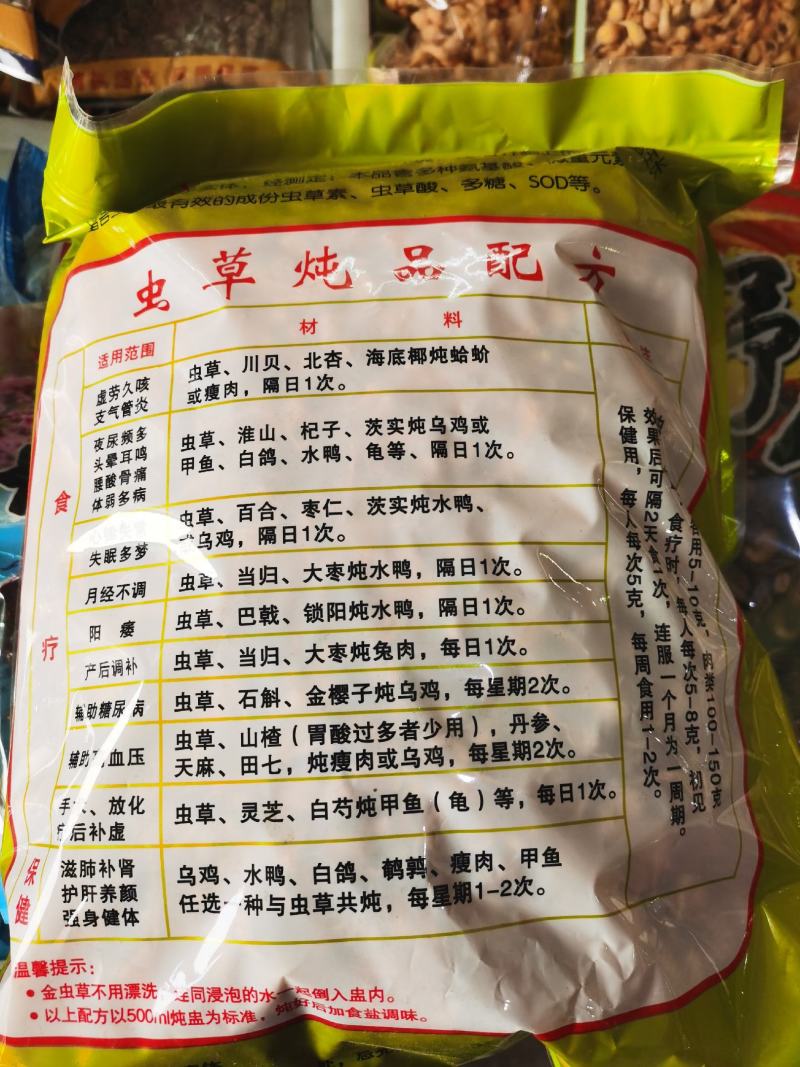 经测定：本品含多种氨基酸、微量元素
最有效的成份虫草素、虫草酸、多糖、SOD等。
虫草炖品配方
适用范围
材 料
食疗
虚劳久咳
支气管炎
虫草、川贝、北杏、海底椰炖蛤蚧
或瘦肉，隔日1次。
夜尿频多
头晕耳鸣
腰酸骨痛
体弱多病
虫草、淮山、杞子、茨实炖乌鸡或
甲鱼、白鸽、水鸭、龟等、隔日1次。
失眠多梦
虫草、百合、枣仁、茨实炖水鸭、
或乌鸡，隔日1次。
月经不调
虫草、当归、大枣炖水鸭，隔日1次。
阳 痿
虫草、巴戟、锁阳炖水鸭，隔日1次。
产后调补
虫草、当归、大枣炖兔肉，每日1次。
辅助糖尿病
虫草、石斛、金樱子炖乌鸡，每星期2次。
辅助 血压
虫草、山楂（胃酸过多者少用），丹参、
天麻、田七，炖瘦肉或乌鸡，每星期2次。
手 、放化
后补虚
虫草、灵芝、白芍炖甲鱼（龟）等，每日1次。
保健
滋肺补肾
护肝养颜
强身健体
乌鸡、水鸭、白鸽、鹌鹑、瘦肉、甲鱼
任选一种与虫草共炖，每星期1-2次。
用5-10克，肉类100-150克
食疗时，每人每次5-8克，初见
效果后可隔2天食1次，连服一个月为一周期。
保健用，每人每次5克，每周食用1-2次。
温馨提示：
•金虫草不用漂洗，连同浸泡的水一起倒入盅内。
•以上配方以500ml炖盅为标准，炖好后加食盐调味。